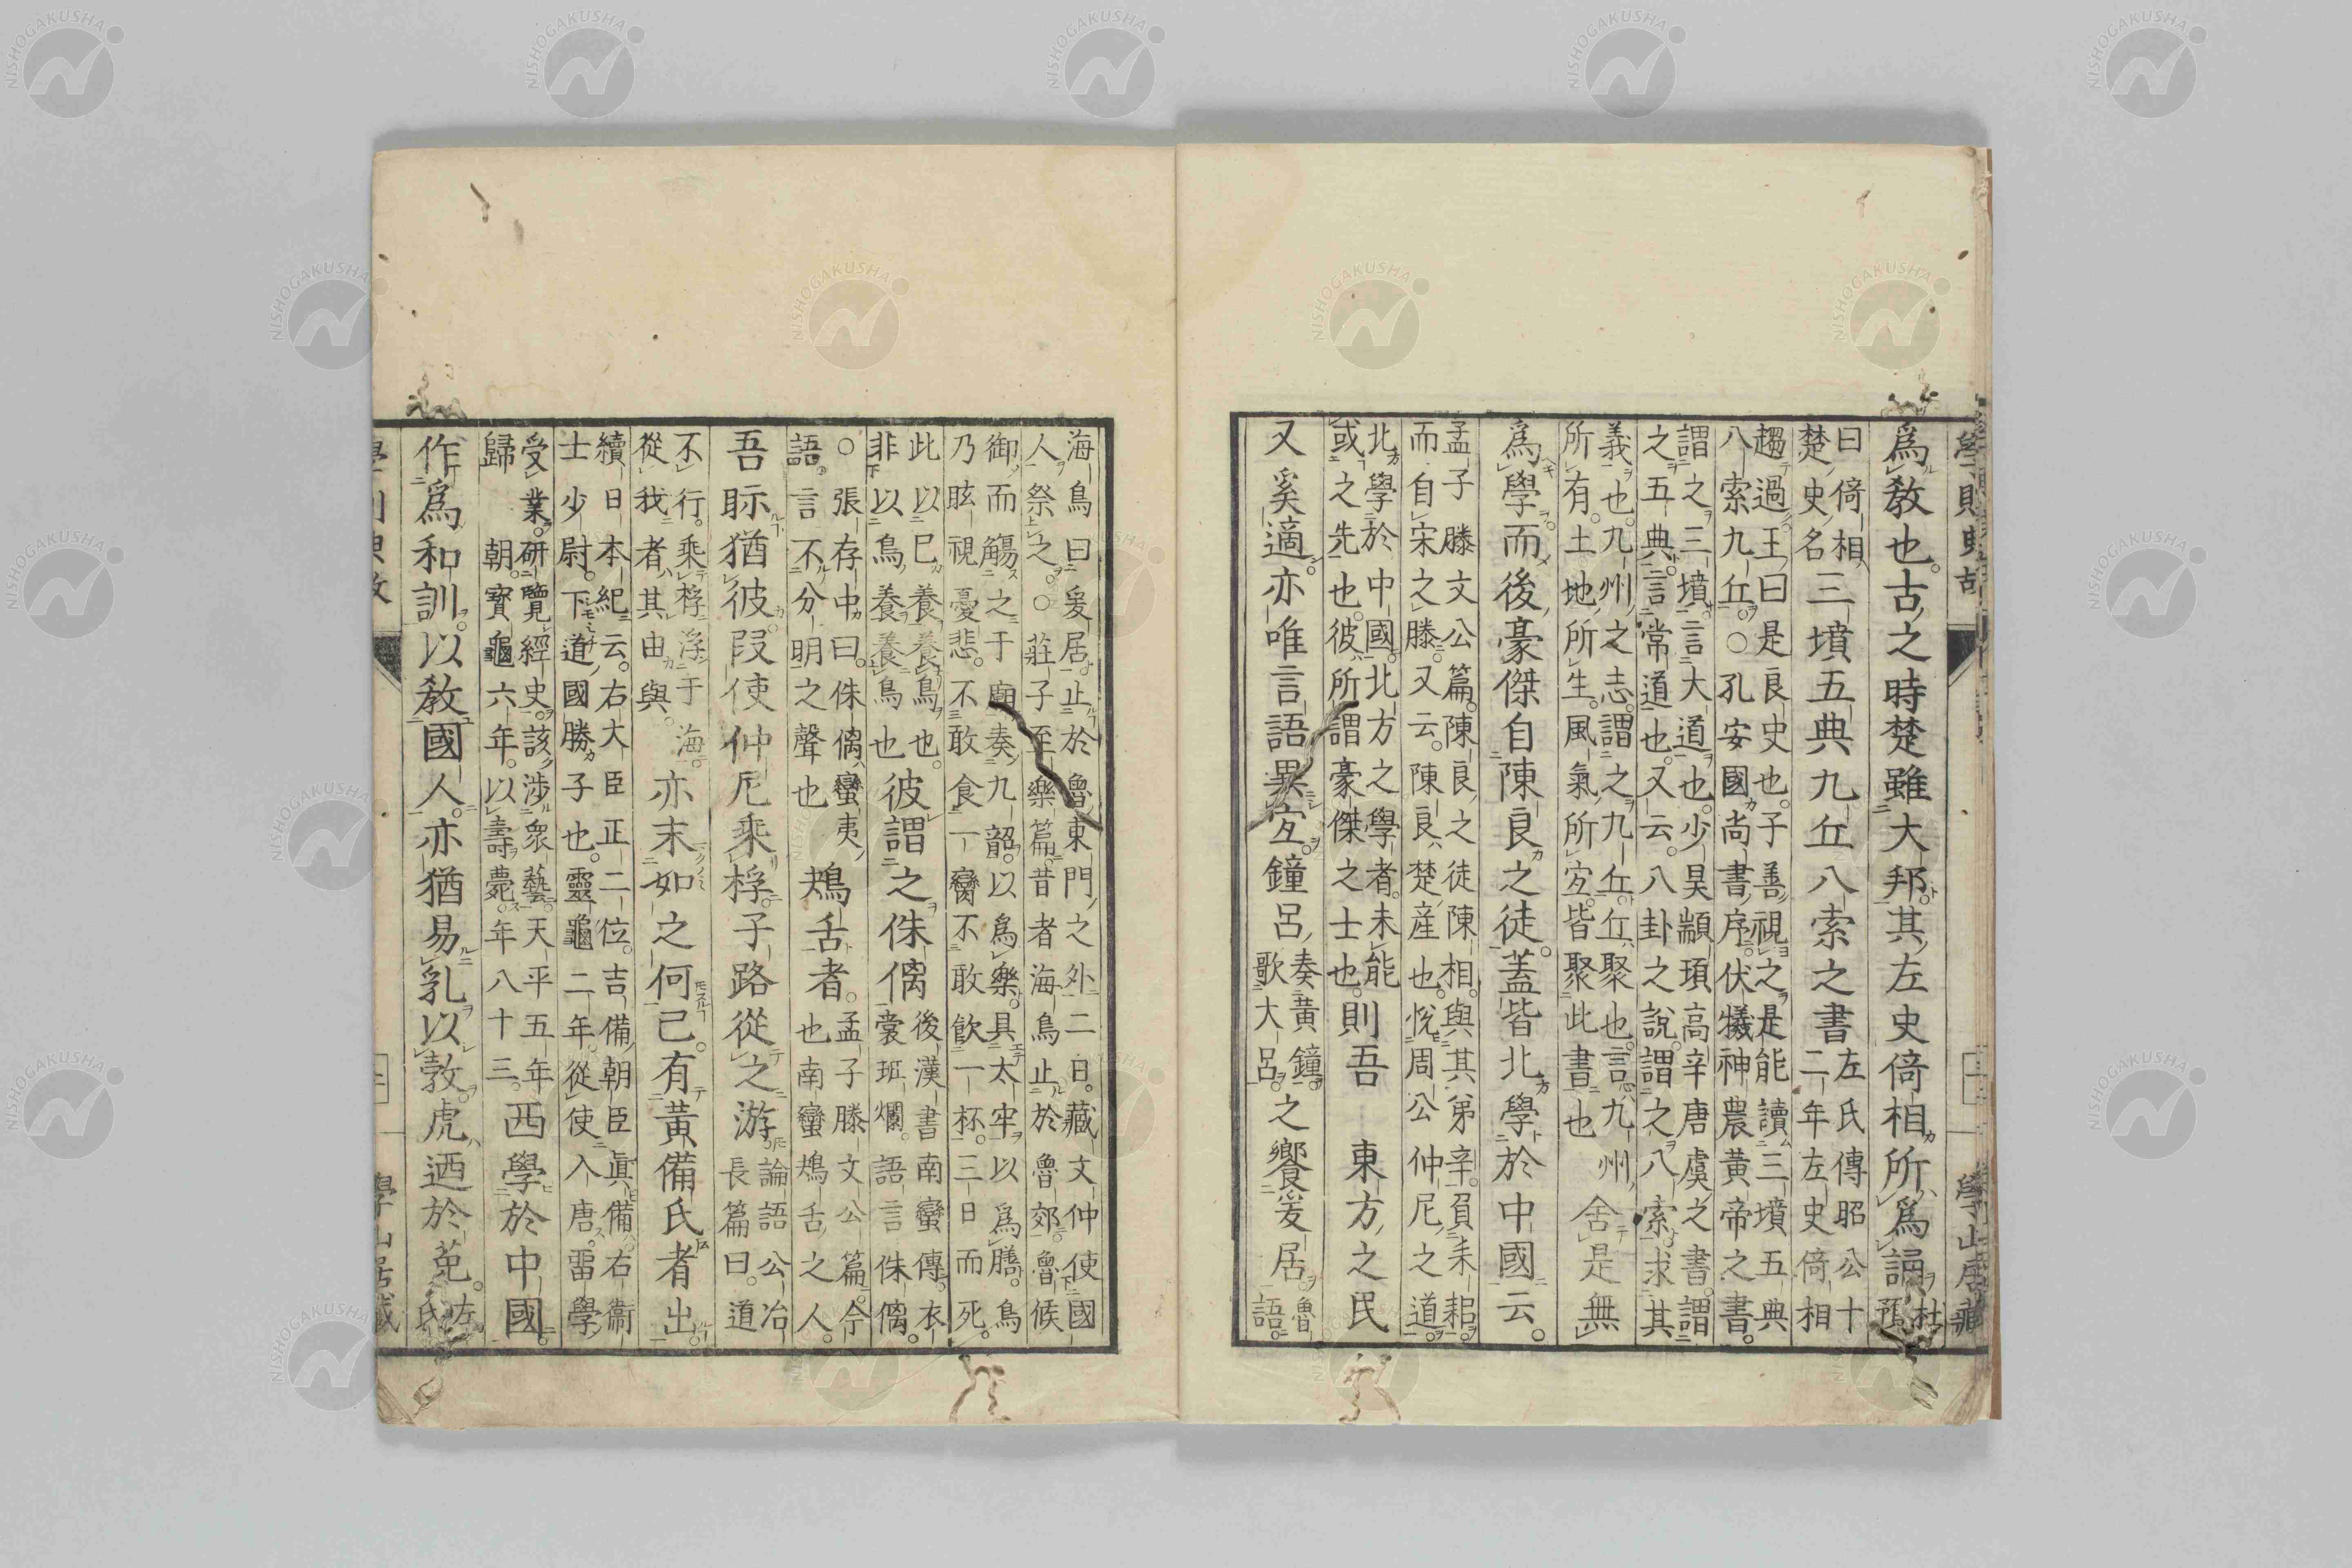 爲教也。古之時楚雖大邦。其左史倚相所爲誦杜預
曰倚相
楚史名三墳五典九丘八索之書左氏傳昭公十
二年左史倚相
趨過王曰是良史也。子善視之。是能讀三墳五典
八索九丘。○孔安國尚書序。伏犧神農黃帝之書。
謂之三墳。言大道也。少昊顓頊高辛唐虞之書。謂
之五典。言常道也。又云。八卦之說。謂之八索。求其
義也。九州之志。謂之九丘。丘聚也。言九州
所有。土地所生。風氣所宜。皆聚此書也舍是無
爲學。而後豪傑自陳良之徒。蓋皆北學於中國云。
孟子滕文公篇。陳良之徒陳相。與其弟辛。負耒耜。
而自宋之滕。又云。陳良楚產也。悅周公仲尼之道
北學於中國。北方之學者。未能
或之先也。彼所謂豪傑之士也。則吾東方之民
又奚適。亦唯言語異宜。鐘呂奏黃鐘。
歌大呂。之饗爰居。魯
語。
海鳥曰爰居。止於魯東門之外二日。臧文仲使國
人祭之。○莊子至樂篇。昔者海鳥止於魯郊。魯侯
御而觴之于廟。奏九韶以爲樂。具太牢以爲膳。鳥
乃眩視憂悲。不敢食一臠不敢飲一杯。三日而死。
此以己養養鳥也。
非以鳥養養鳥也彼謂之侏㒧後漢書南蠻傳。衣
裳班爛。語言侏㒧。
○張存中曰。侏㒧蠻夷
語。言不分明之聲也鴂舌者。孟子滕文公篇。今
也南蠻鴂舌之人。
吾眎猶彼。叚使仲尼乘桴。子路從之游論語公冶
長篇曰。道
不行。乘桴浮于海。
從我者。其由與。亦末如之何已。有黃備氏者出。
續日本紀云。右大臣正二位。吉備朝臣眞備。右衞
士少尉。下道國勝子也。靈龜二年。從使入唐。畱學
受業。研覽經史。該涉衆藝。天平五年。
歸朝。寶龜六年。以壽薨。年八十三。西學於中國。
作爲和訓。以教國人。亦猶易乳以㝅。虎迺於菟。左
氏